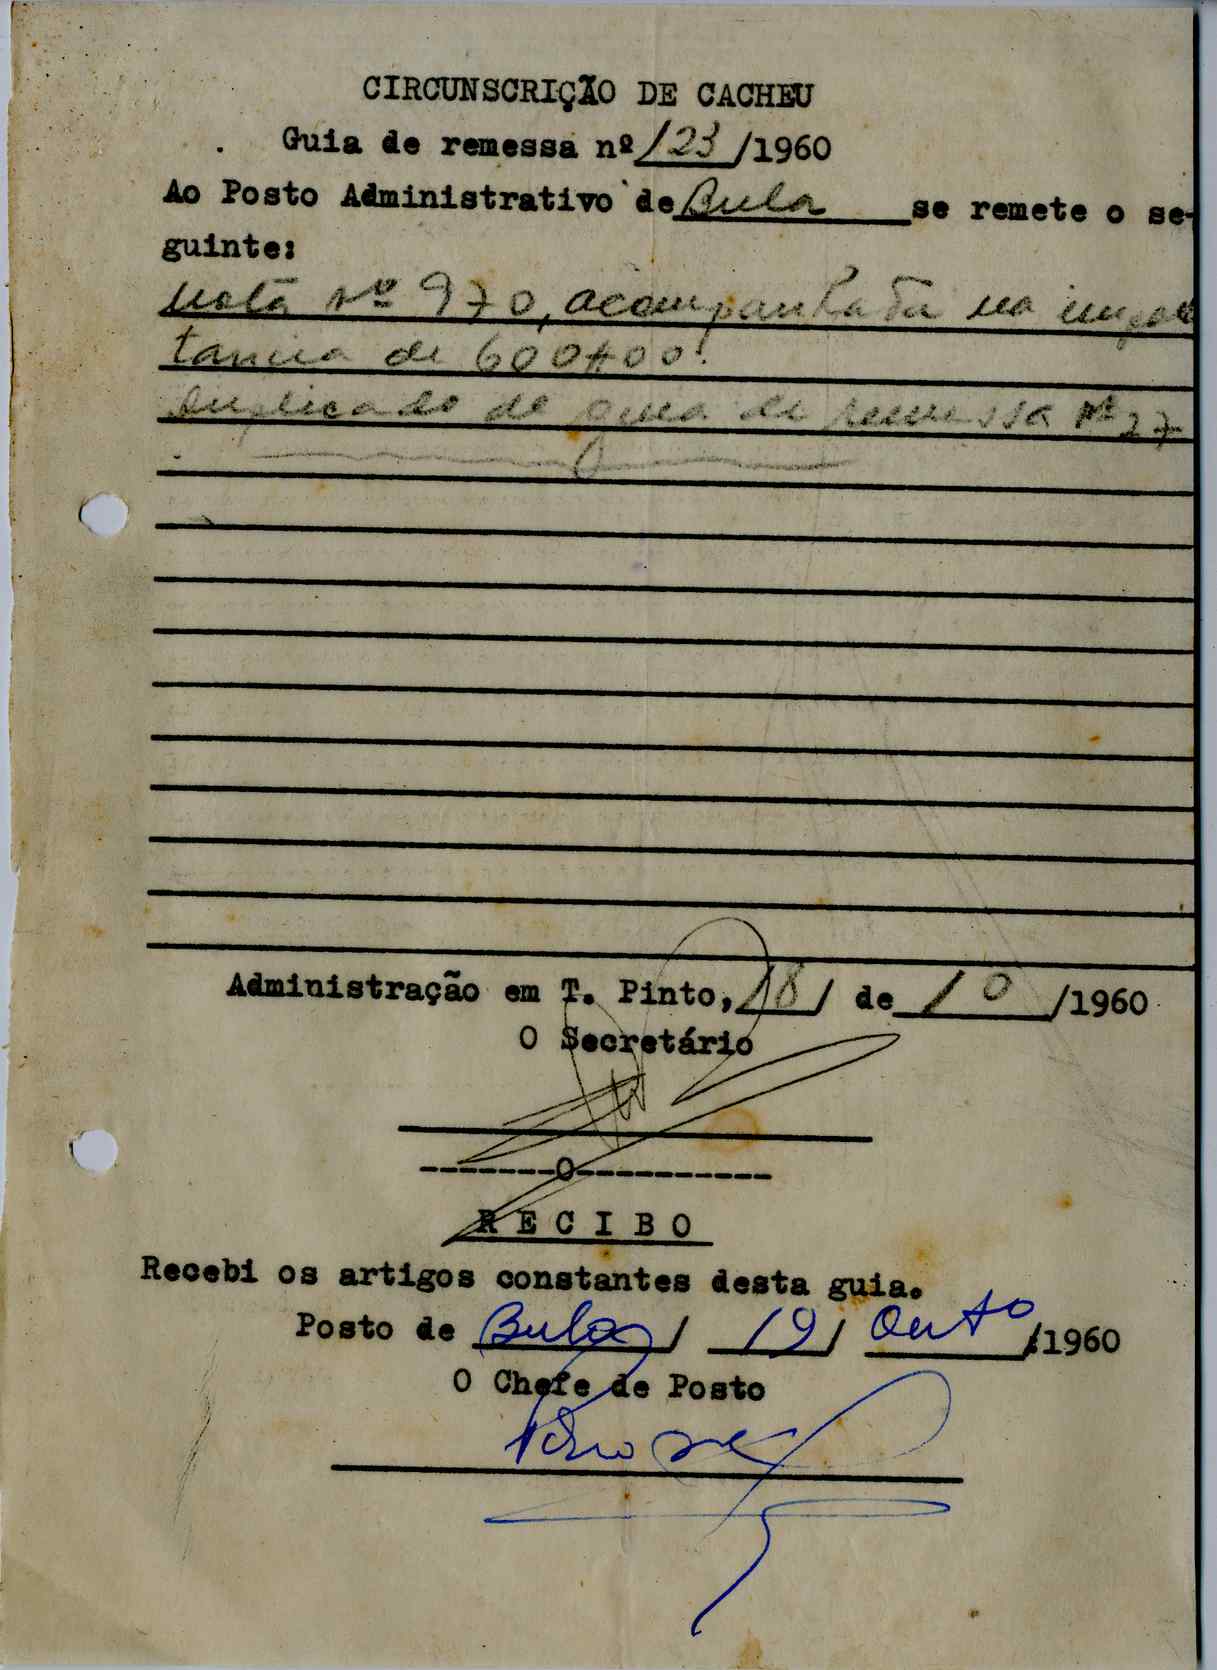 CIRCUNSCRIÇÃO DE CACHEU
Guia de remessa nº 123/1960
Ao Posto Administrativo de Bula se remete o se-
guinte:
Nota nº 970, acompanhada na impor
tancia de 600$00.
Duplicado de guia de remessa nº 27
Administração em T. Pinto, 18/ de 10/1960
O Secretário
-------O----------
RECIBO
Recebi os artigos constantes desta guia.
Posto de Bula/ 19/ Outº/1960
O Chefe de Posto